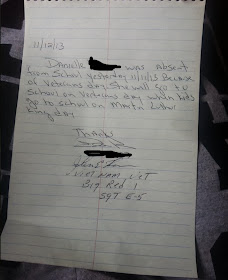 11/12/13
Danielle was absent
from School yesterday 11/11/13 Because
of Veterans day. She will go to
School on Veterans day when kids
go to school on Martin Luther
King day
Thanks
Vietnam Vet
Big Red 1
SGT E-5